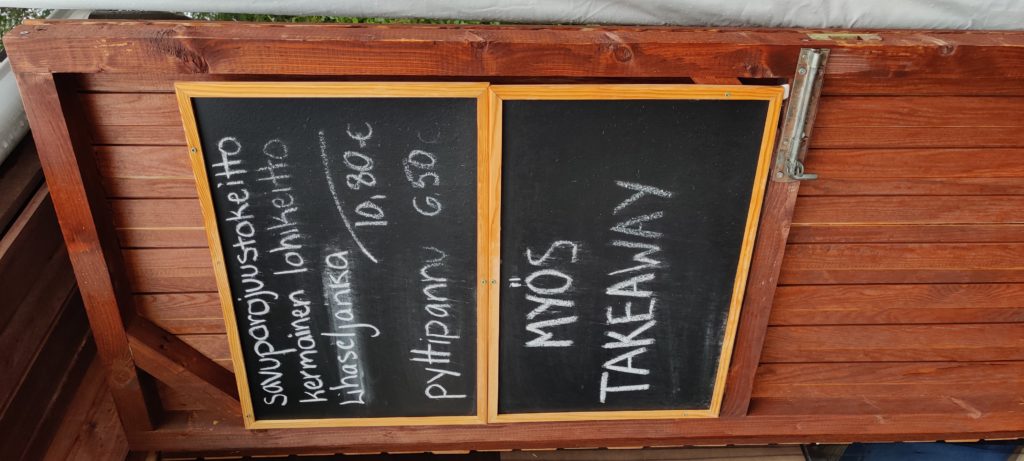 savuporojuustokeitto
kermainen lohikeitto
lihaseljankia
10,80 €
pyttipannu 6.50 €
MYÖS
TAKEAWAY